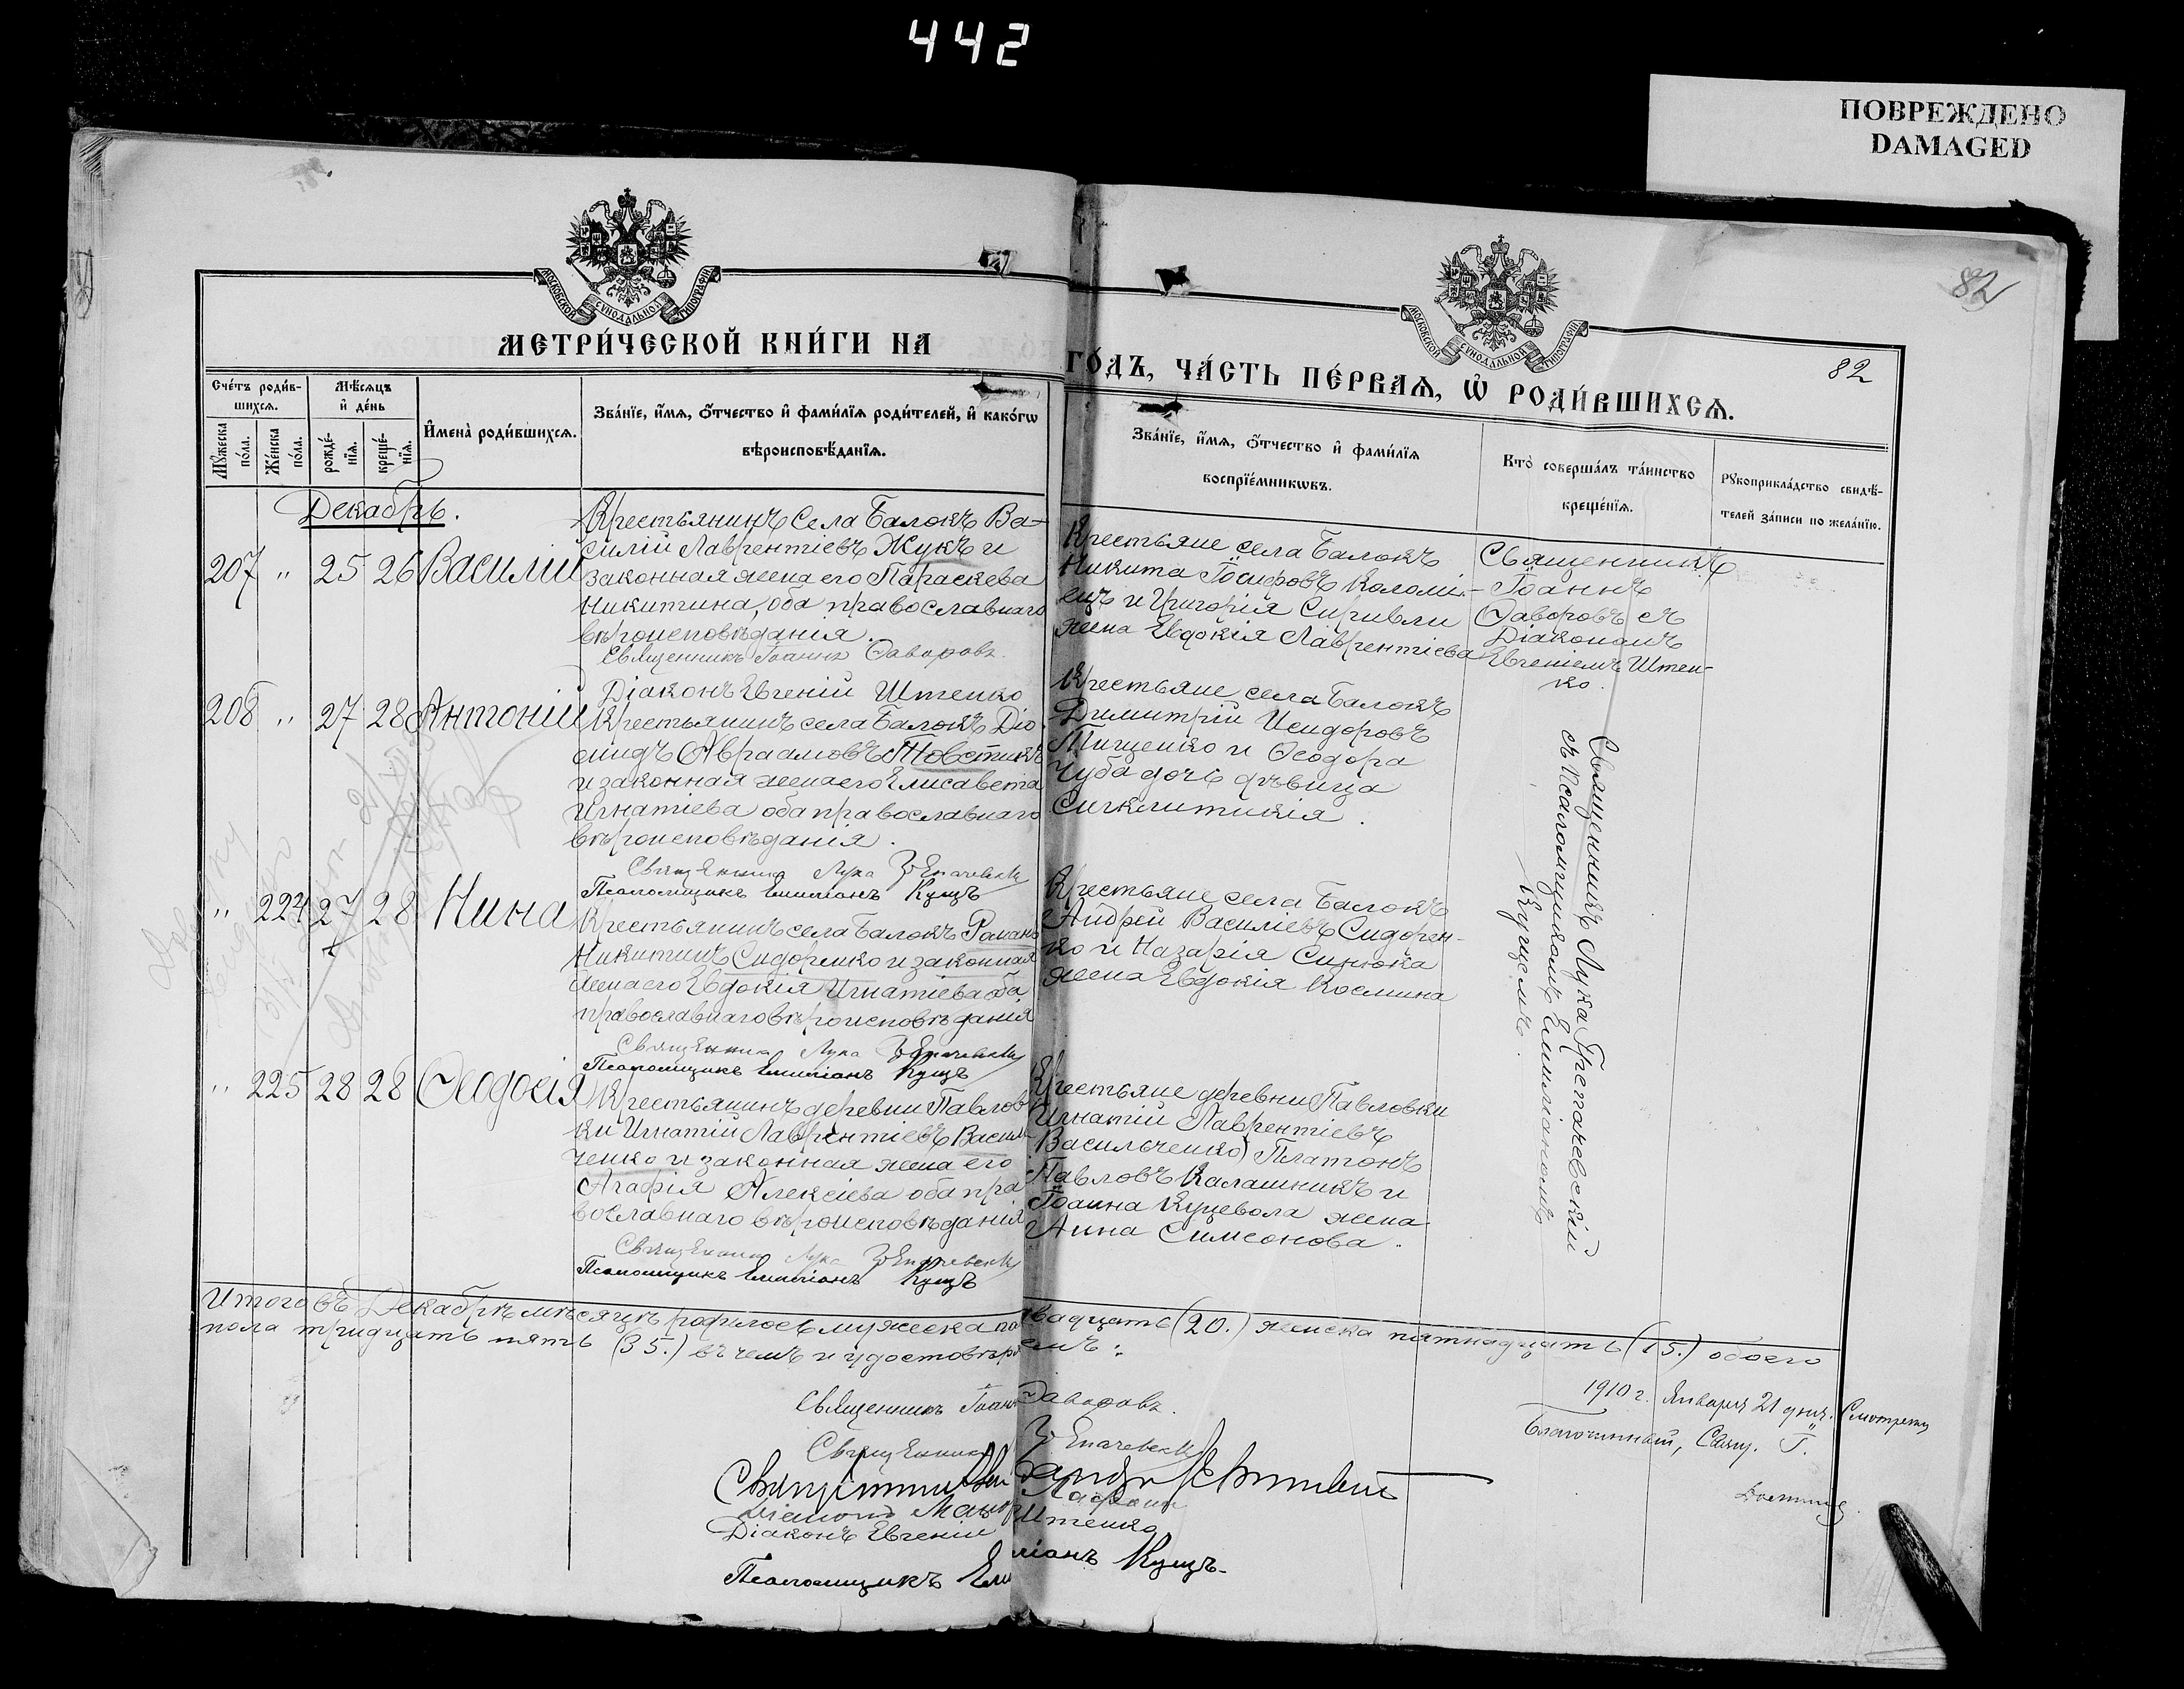 442
ПОВРЕЖДЕНО
DAMAGED
82
82
МОСКОВСКОЙ СУНОДАЛЬНОЙ ТИПОГРАФІИ
МОСКОВСКОЙ СУНОДАЛЬНОЙ ТИПОГРАФІИ
МЕТРИ́ЧЕСКОЙ КНИ́ГИ НА
ГО́ДЪ, ЧА́СТЬ ПЕ́РВАѦ, Ѡ҆ РОДИ́ВШИХСѦ.
Сче́тъ роди́в-
шихсѧ.
Мꙋ́жеска
по́ла.
Же́нска
по́ла.
Мѣ́сѧцъ
и҆ де́нь
рожде́-
нїѧ.
креще́-
нїѧ.
И҆мена̀ роди́вшихсѧ.
Зва́нїе, и҆́мѧ, ѻ҆́тчество и҆ фами́лїѧ роди́телей, и҆ како́гѡ
вѣроисповѣ́данїѧ.
Зва́нїе, и҆́мѧ, ѻ҆́тчество и҆ фами́лїѧ
воспрїе́мникѡвъ.
Кто̀ соверша́лъ та́инство
креще́нїѧ.
Рꙋкоприкла́дство свидѣ́-
телей за́писи по жела́нїю.
Декабрь.
207 " 25 26 Василій
Крестьянинъ села Балокъ Ва-
силій Лаврентіевъ Жукъ и
законная жена его Параскева
Никитина, оба православнаго
вѣроисповѣданія.
Священникъ Іоаннъ Ѳаворовъ.
Діаконъ Евгеній Штепко
Крестьяне села Балокъ
Никита Іосифовъ Коломі-
ецъ и Григорія Сиривли
жена Евдокія Лаврентіева
Священникъ
Іоаннъ
Ѳаворовъ съ
Діакономъ
Евгеніемъ Штеп-
ко.
208 " 27 28 Антоній
Крестьянинъ села Балокъ Діо
мидъ Авраамовъ Товстикъ
и законная жена его Елисавета
Игнатіева оба православнаго
вѣроисповѣданія.
Священникъ Лука Грепачевскій
Псаломщикъ Емиліанъ Кущъ
Крестьяне села Балокъ
Димитрій Исидоровъ
Тищенко и Ѳеодора
Чуба дочь дѣвица
Сигклитикія.
Священникъ Лука Грепачевскій
съ Псаломщикомъ Емиліаномъ
Кущемъ.
" 224 27 28 Нина
Крестьянинъ села Балокъ Романъ
Никитинъ Сидоренко и законная
жена его Евдокія Игнатіева оба
православнаго вѣроисповѣданія
Священникъ Лука Грепачевскій
Псаломщикъ Емиліанъ Кущъ
Крестьяне села Балокъ
Андрей Василіевъ Сидорен-
ко и Назарія Синюка
жена Евдокія Космина
" 225 28 28 Ѳеодосія
Крестьянинъ деревни Павлов
ки Игнатій Лаврентіевъ Василь
ченко и законная жена его
Агафія Алексіева оба пра
вославнаго вѣроисповѣданія
Священникъ Лука Грепачевскій
Псаломщикъ Емиліанъ Кущъ
Крестьяне деревни Павловки
Игнатій Лаврентіевъ
Васильченко) Платонъ
Павловъ Калашникъ и
Іоанна Куцевола жена
Анна Симеонова.
Итого въ Декабрѣ мѣсяцѣ родилось мужеска по двадцать (20.) женска пятнадцать (15.) обоего
пола тридцать пять (35.) въ чемъ и удостовѣряемъ:
Священникъ Іоаннъ Ѳаворовъ.
Священникъ Грепачевскій
Священникъ
Діаконъ
Діаконъ Евгеній Штепко
Псаломщикъ Емиліанъ Кущъ.
1910 г. Января 21 дня. Смотрелъ
Благочинный, Свящ. І.